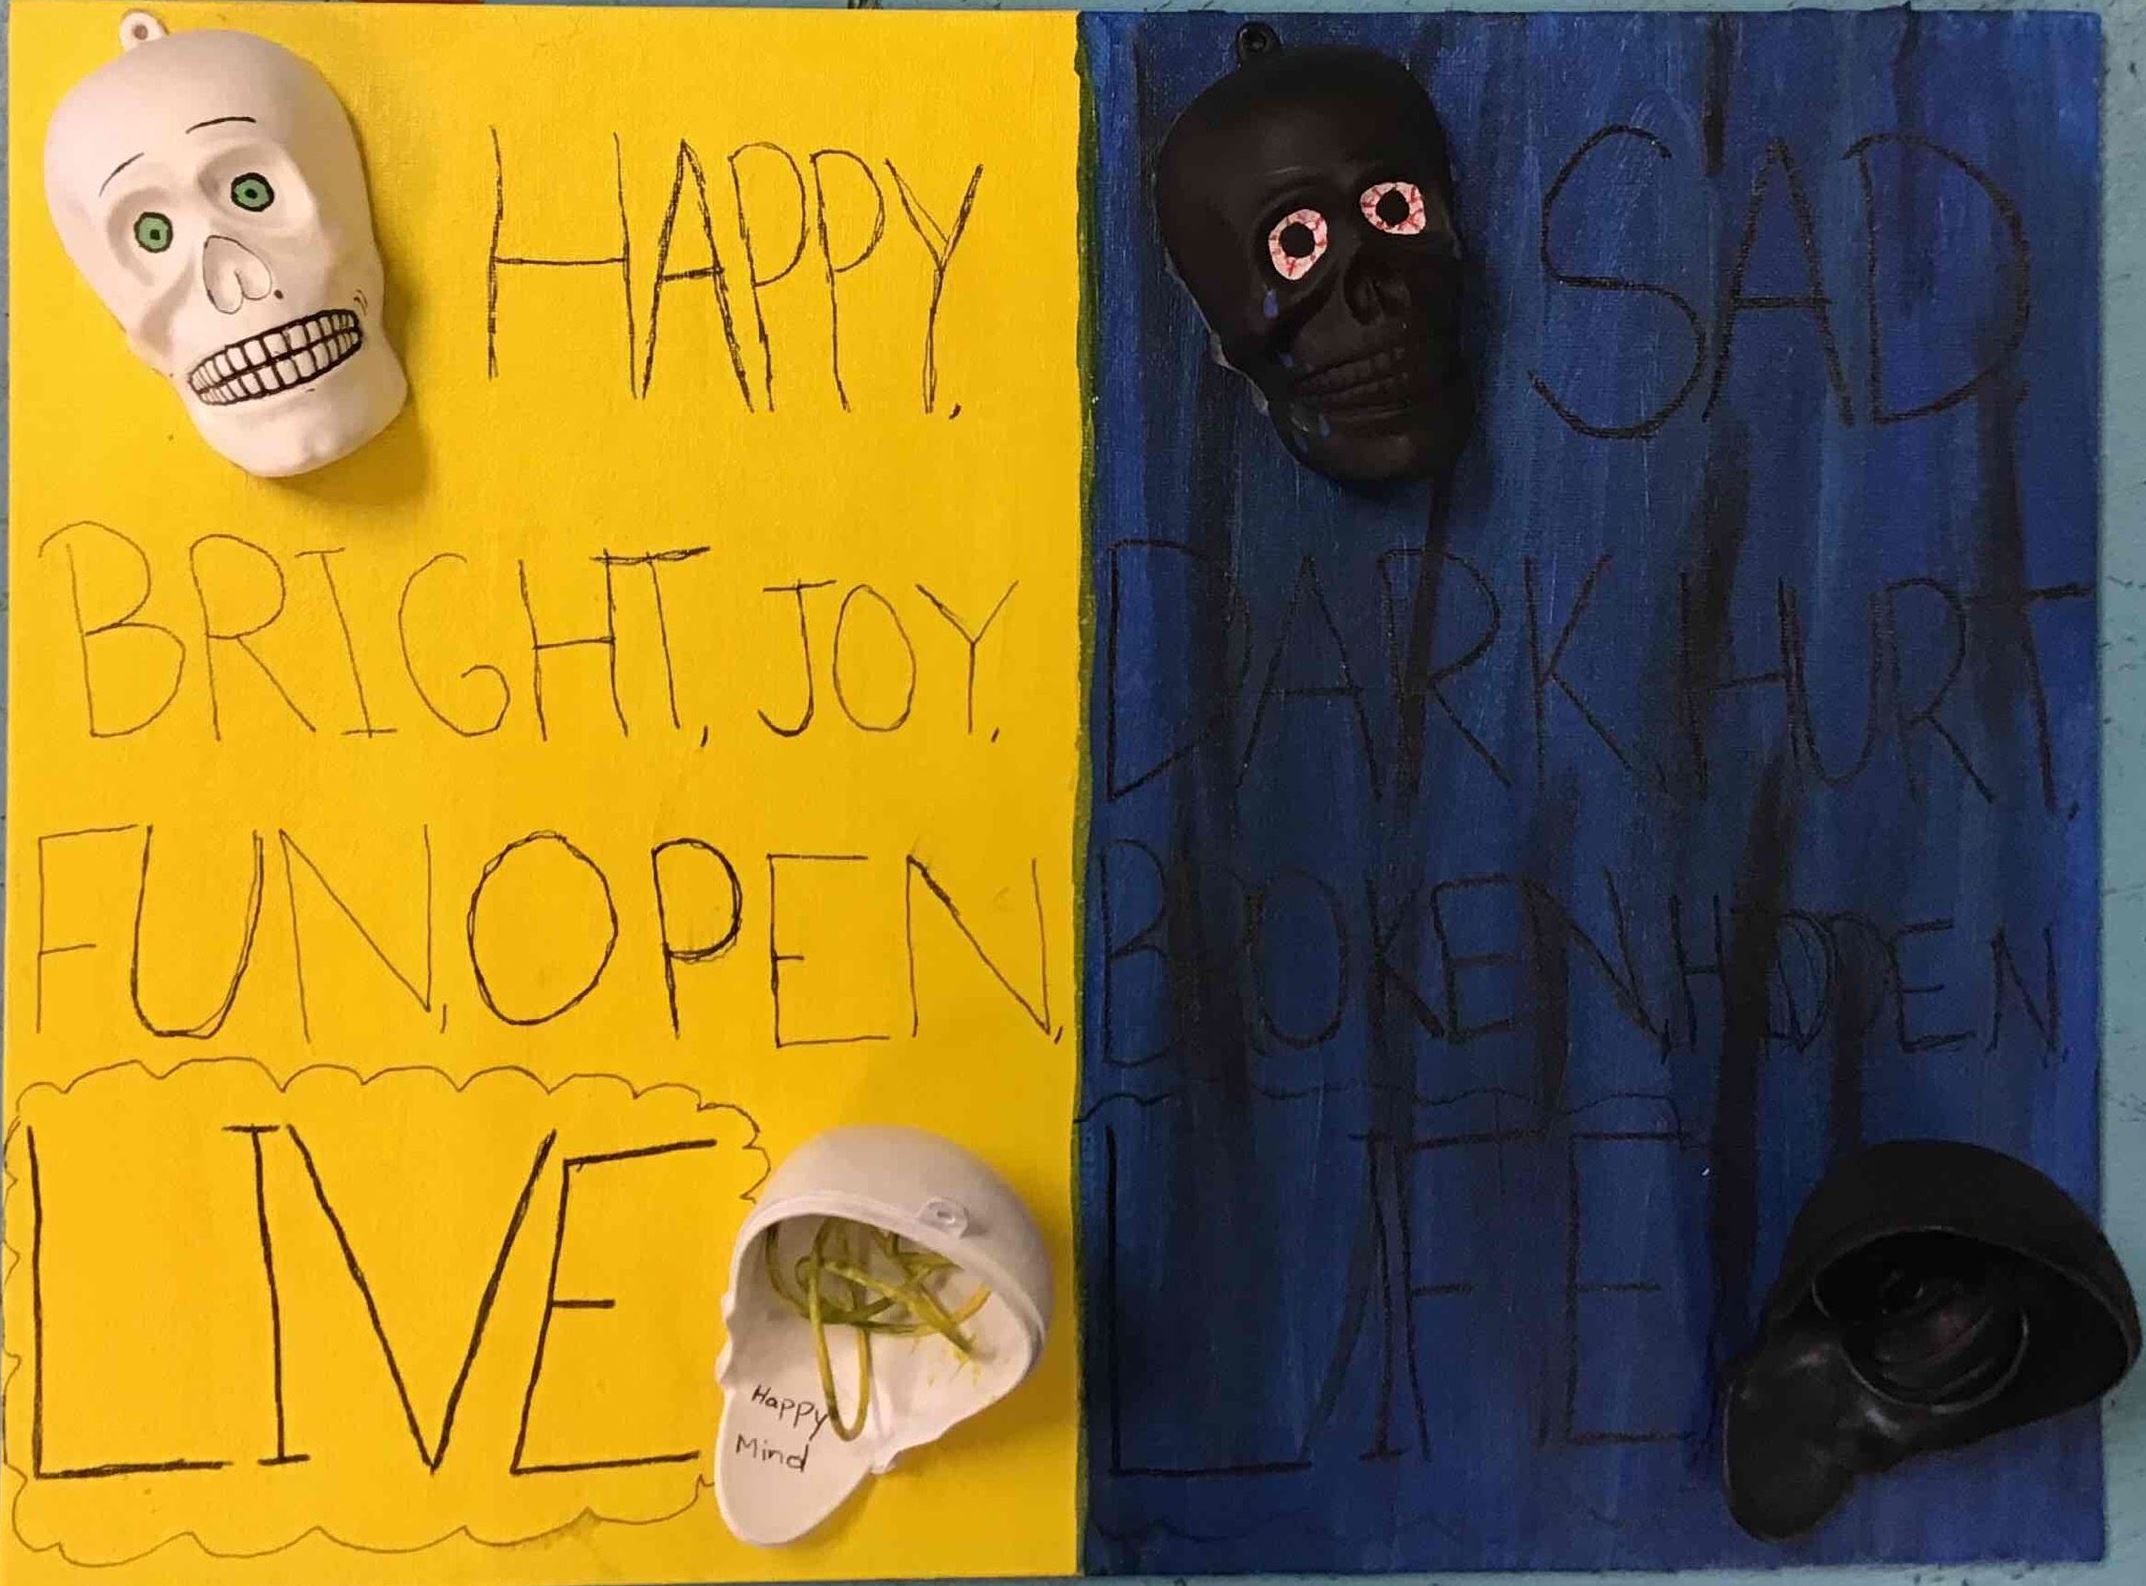 HAPPY,
BRIGHT, JOY,
FUN, OPEN,
LIVE
Happy
Mind
SAD
DARK HURT,
BROKEN, HIDDEN,
LIFE